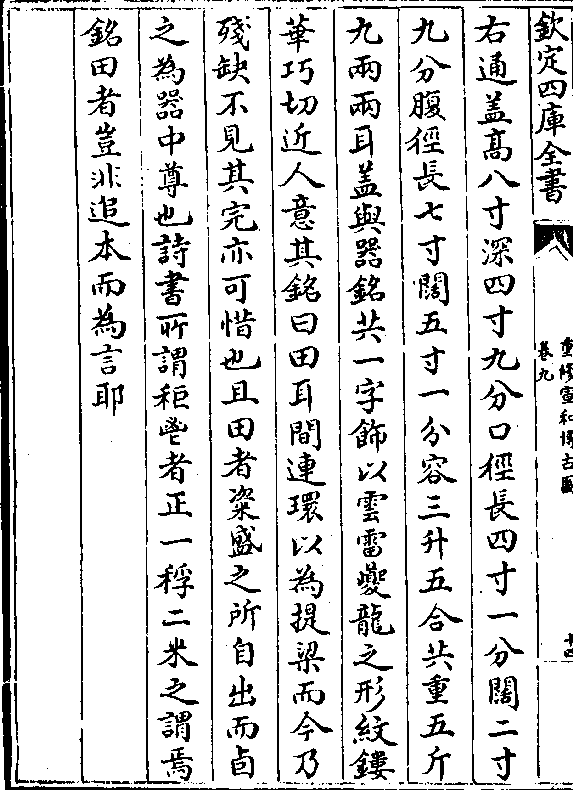 欽定四庫全書
重修宣和博古圖
卷九
十四
右通盖高八寸深四寸九分口徑長四寸一分闊二寸
九分腹徑長七寸闊五寸一分容三升五合共重五斤
九兩兩耳盖與器銘共一字飾以雲雷夔龍之形紋鏤
華巧切近人意其銘曰田耳間連環以為提梁而今乃
殘缺不見其完亦可惜也且田者粢盛之所自出而卣
之為器中尊也詩書所謂秬鬯者正一稃二米之謂焉
銘田者豈非追本而為言耶